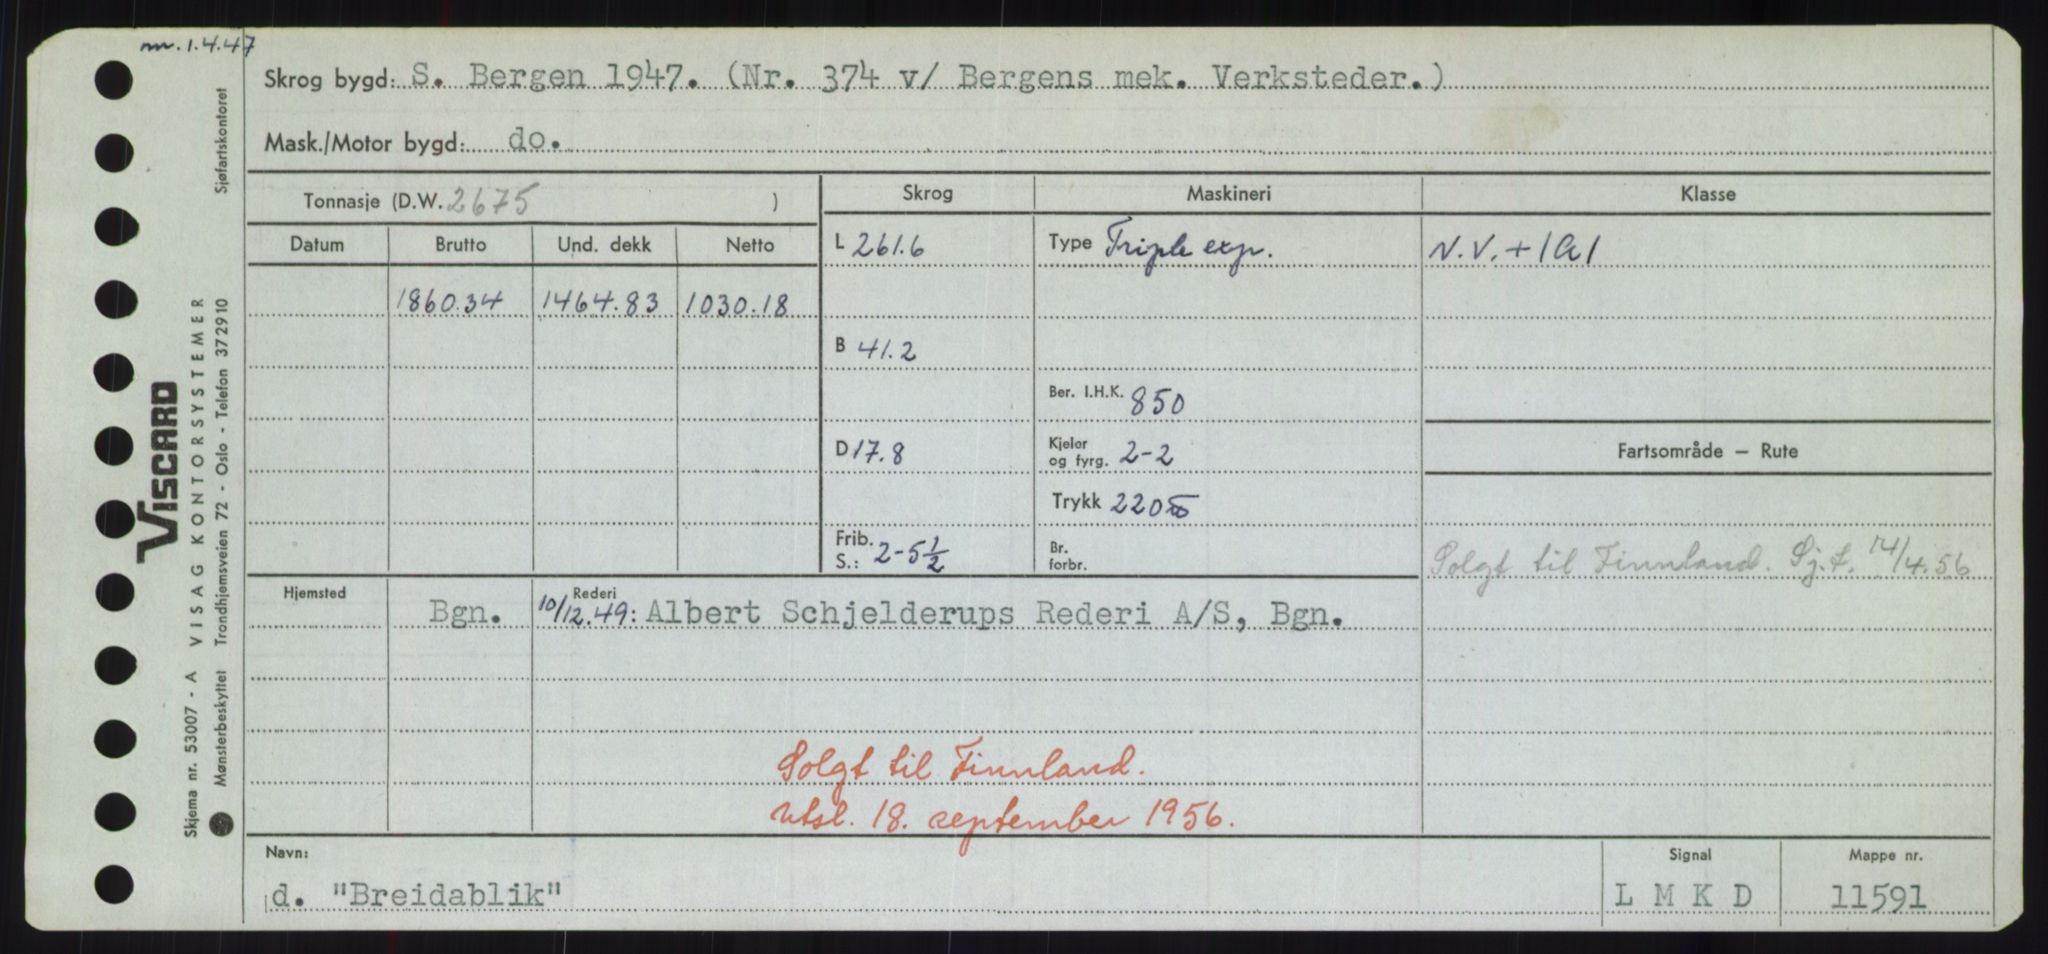 nr. 1.4.47
Skrog bygd: S. Bergen 1947. (Nr. 374 v/ Bergens mek. Verksteder.)
Mask./Motor bygd: do.
Tonnasje (D.W. 2675 )
Skrog Maskineri Klasse
Datum Brutto Und. dekk Netto
L 261.6 Type Triple exp. N.V. + 1A1
1860.34 1464.83 1030.18
B 41.2
Ber. I.H.K. 850
D 17.8 Kjeler og fyrg. 2-2
Fartsområde – Rute
Trykk 220
Frib. S.: 2-5½ Br. forbr.
Solgt til Finnland. Sj.f. 14/4.56
Hjemsted Rederi
Bgn. 10/12.49: Albert Schjelderups Rederi A/S, Bgn.
Solgt til Finnland.
utsl. 18. september 1956.
Navn: Signal Mappe nr.
d. "Breidablik" L M K D 11591
VISCARD
Skjema nr. 53007 - A VISAG KONTORSYSTEMER
Mønsterbeskyttet Trondhjemsveien 72 - Oslo - Telefon 372910 Sjøfartskontoret